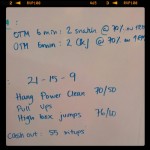 :
OTM 6 min: 2 snatch @ 70%
OTM 6min: 2 C&J @ 70%
21-15-9
Hang Power Clean 70/50
Pull ups
High box jumps 76/60
Cash out: 55 situps